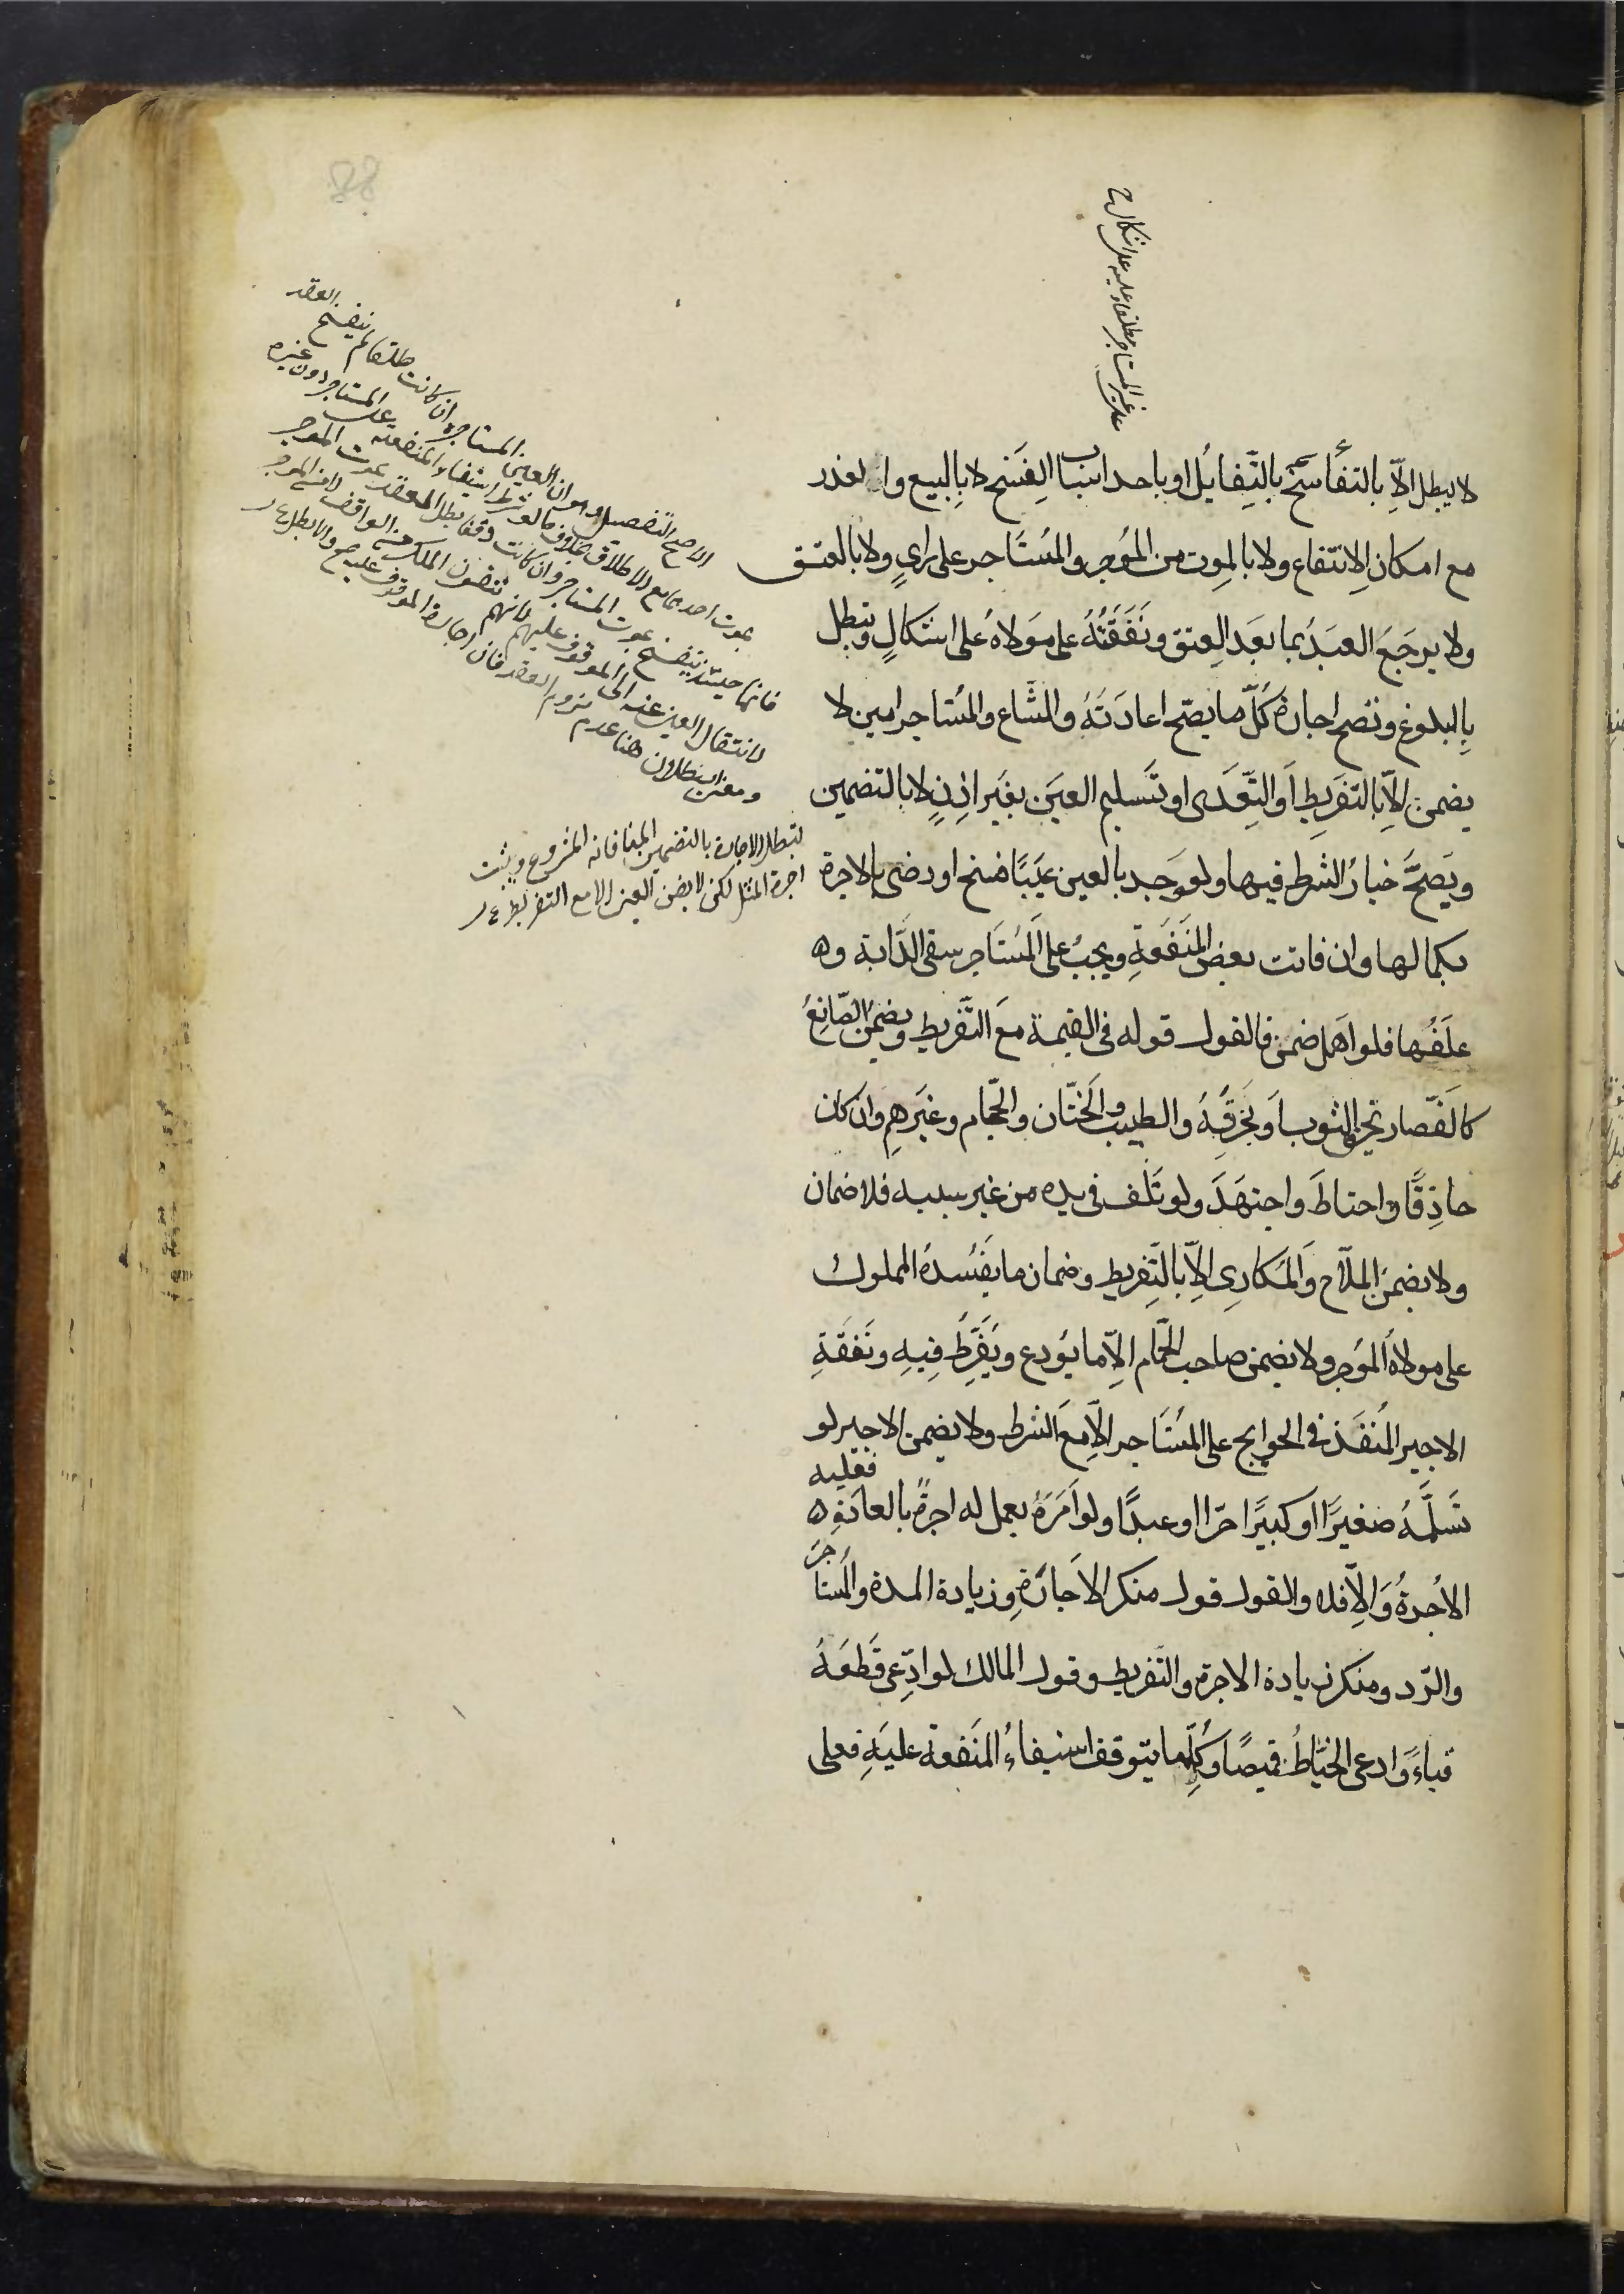 لا يبطل الّا بالتفاسخ بالتّقايل او باحد اسباب الفسخ لا بالبيع و العذر
مع امكان الانتفاع ولا بالموت من المؤجر والمستاجر على راي ولا بالعتق
ولا يرجع العبد بما بعد العتق ونفقته على مولاه على اشكال وتبطل
بالبلوغ وتصح اجارة كلّ ما يصحّ اعادته والمشاع والمستاجر امين لا
يضمن الّا بالتفريط او التّعدى او تسليم العين بغير اذن لا بالتضمين
ويصحّ خيار الشرط فيها ولو وجد بالعين عيبًا فسخ او رضى بالاجرة
بكمالها وان فاتت بعض المنفعة ويجب على المستاجر سقى الدّابة و
علفها فلو اهمل ضمن فالقول قوله فى القيمة مع التّفريط ويضمن الصّانع
كالقصّار يحرق الثوب او يخرقه والطبيب والختّان والحجّام وغيرهم وان كان
حاذقًا واحتاط واجتهد ولو تلف فى يده من غير سببه فلا ضمان
ولا يضمن الملّاح والمكارى الّا بالتّفريط وضمان ما يفسده المملوك
على مولاه المؤجر ولا يضمن صاحب الحمّام الّا ما يودع ويفرّط فيه ونفقة
الاجير المنفذ فى الحوايج على المستاجر الّا مع الشرط ولا يضمن الاجير لو
تسلّمه صغيرًا او كبيرًا حرّا او عبدًا ولو امره بعمل له اجرةً بالعادة فعليه
الاُجرة والّا فلا والقول قول منكر الاجارة وزيادة المدة والمستاجر
والرّد ومنكر زيادة الاجرة والتّفريط وقول المالك لو ادّعى قطعه
قباءً وادعى الخيّاط قميصًا وكلّما يتوقف استيفاء المنفعة عليه فعلى
على غير المستاجر مطلقا وعليه على اشكال ح
الاصح التفصيل وهو ان العين المستاجرة ان كانت طلقا لم ينفسخ العقد
بموت احدهما مع الاطلاق بخلاف ما لو شرط استيفاء المنفعة على المستاجر دون غيره
فانها حينئذ ينفسخ بموت المستاجر وان كانت وقفا بطل العقد بموت الموجر
لانتقال العين عنه الى الموقوف عليهم لانهم يتلقون الملك من الواقف لا من الموجر
ومعنى البطلان هنا عدم لزوم العقد فان اجازه الموقوف عليه صح والا بطل
تبطل الاجارة بالتضمين لمنافاته المشروع ويثبت
اجرة المثل لكن لا يضمن العين الا مع التفريط
88